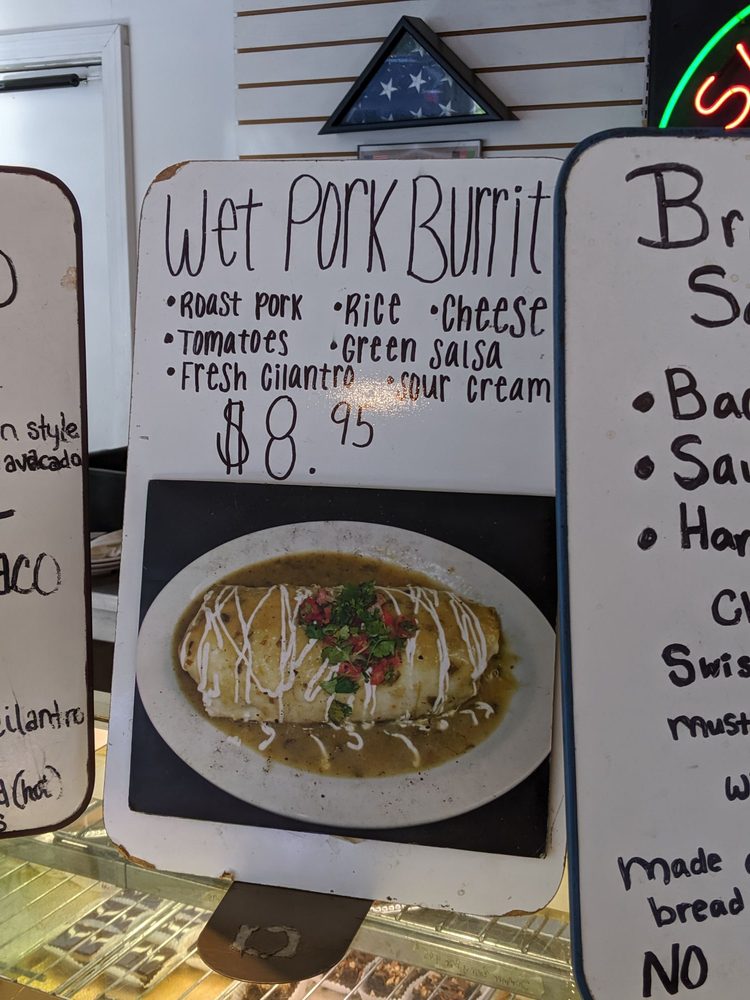 n style
avacado
ACO
cilantro
(hot)
Wet Pork Burrit
•Roast Pork •Rice •Cheese
•Tomatoes •Green Salsa
•Fresh Cilantro •Sour cream
$8.95
Br
S
•Ba
•Sau
•Har
Ch
Swis
must
w
made
bread
NO